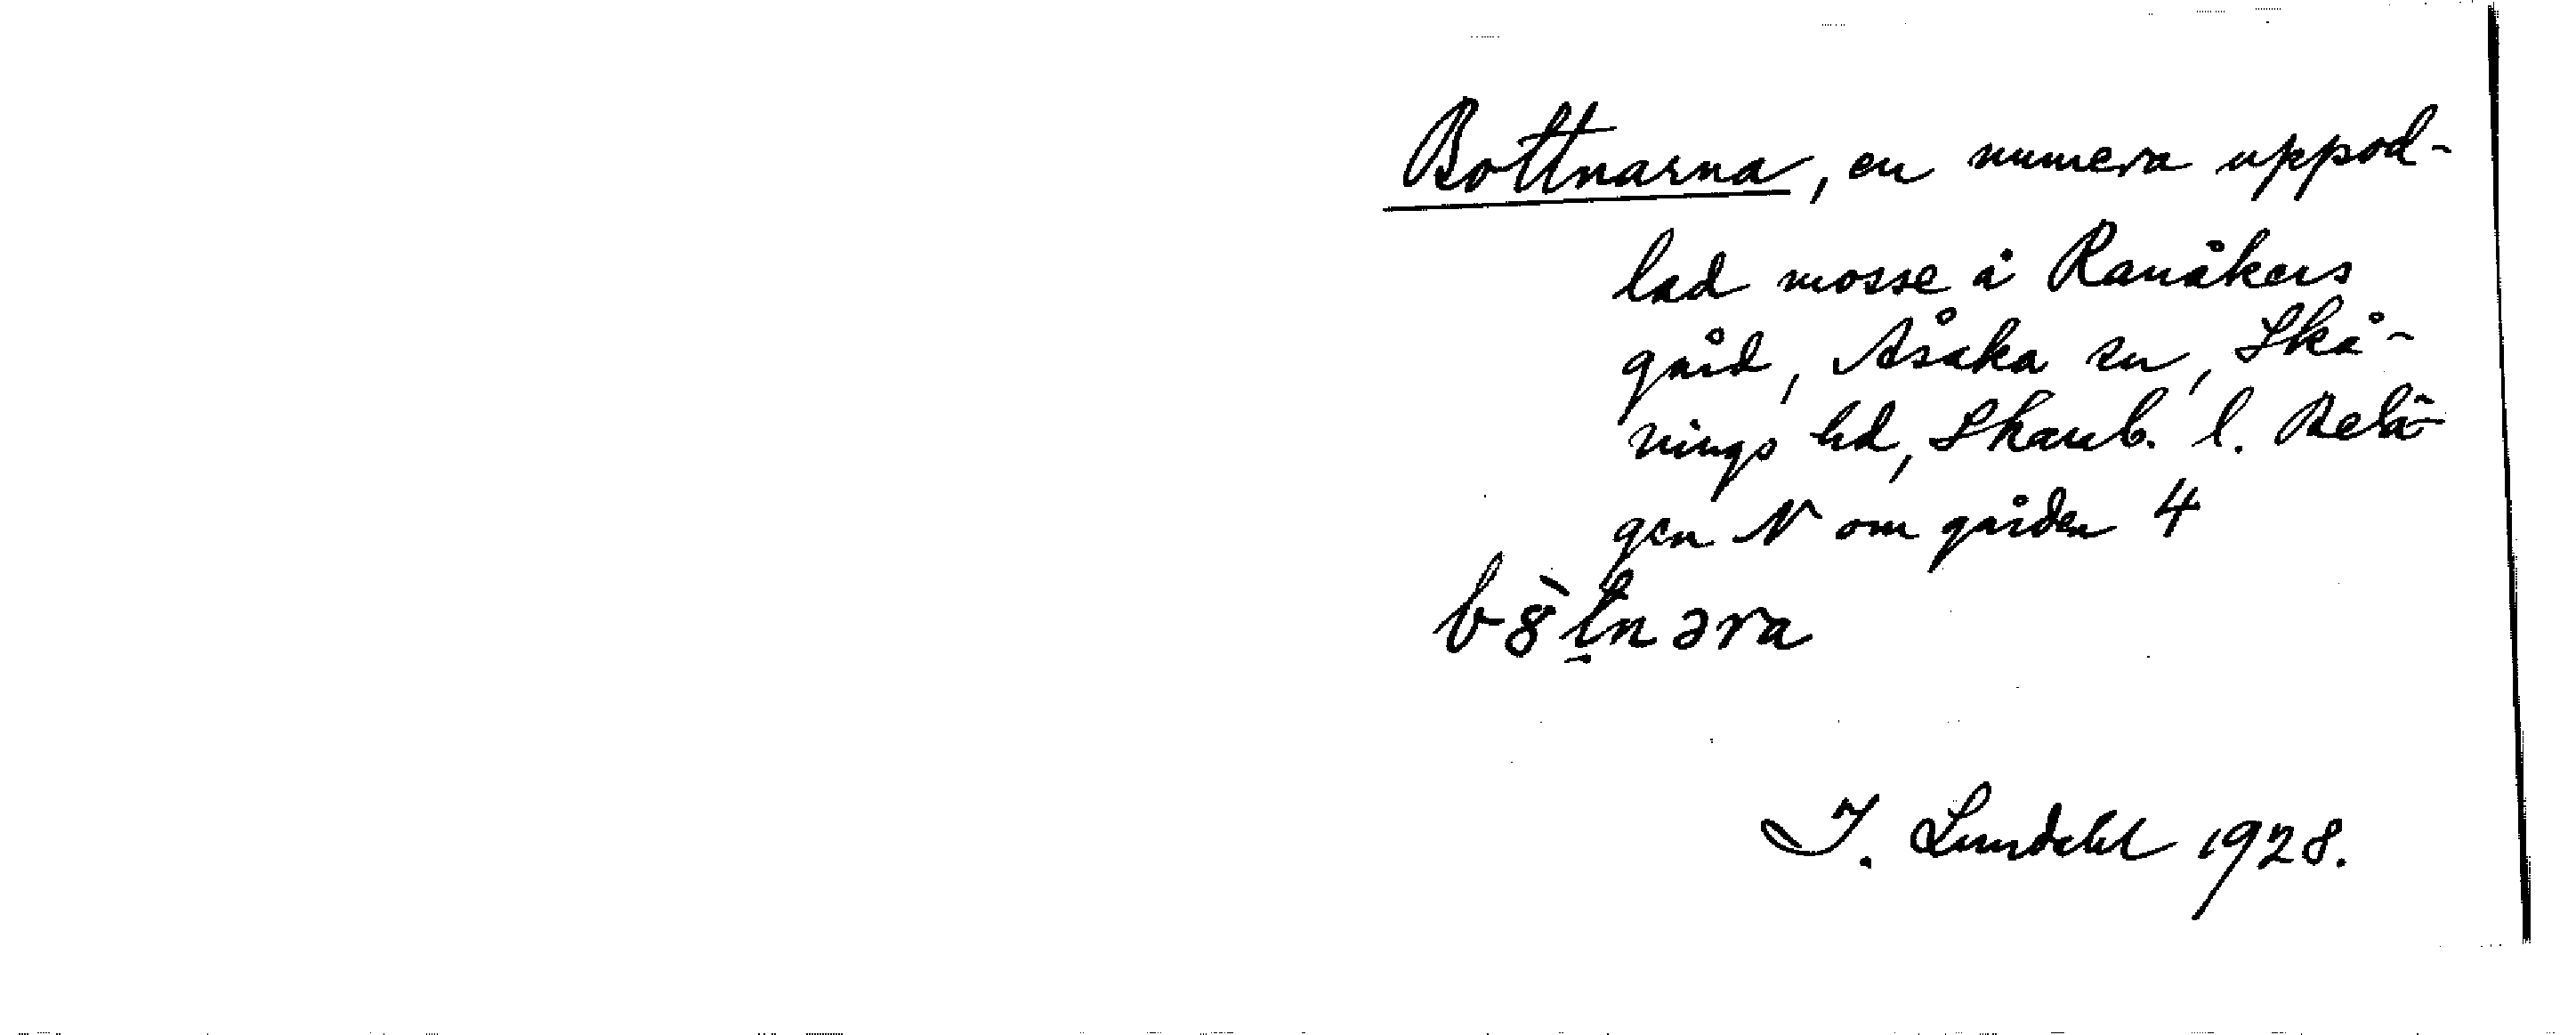 Bottnarna, en numera uppod-
lad mosse å Ranåkers
gård, Åsaka sn, Skå-
nings hd, Skarab. l. Belä-
gen N om gården 4
b8̀t̠nəra
I. Lundahl 1928.